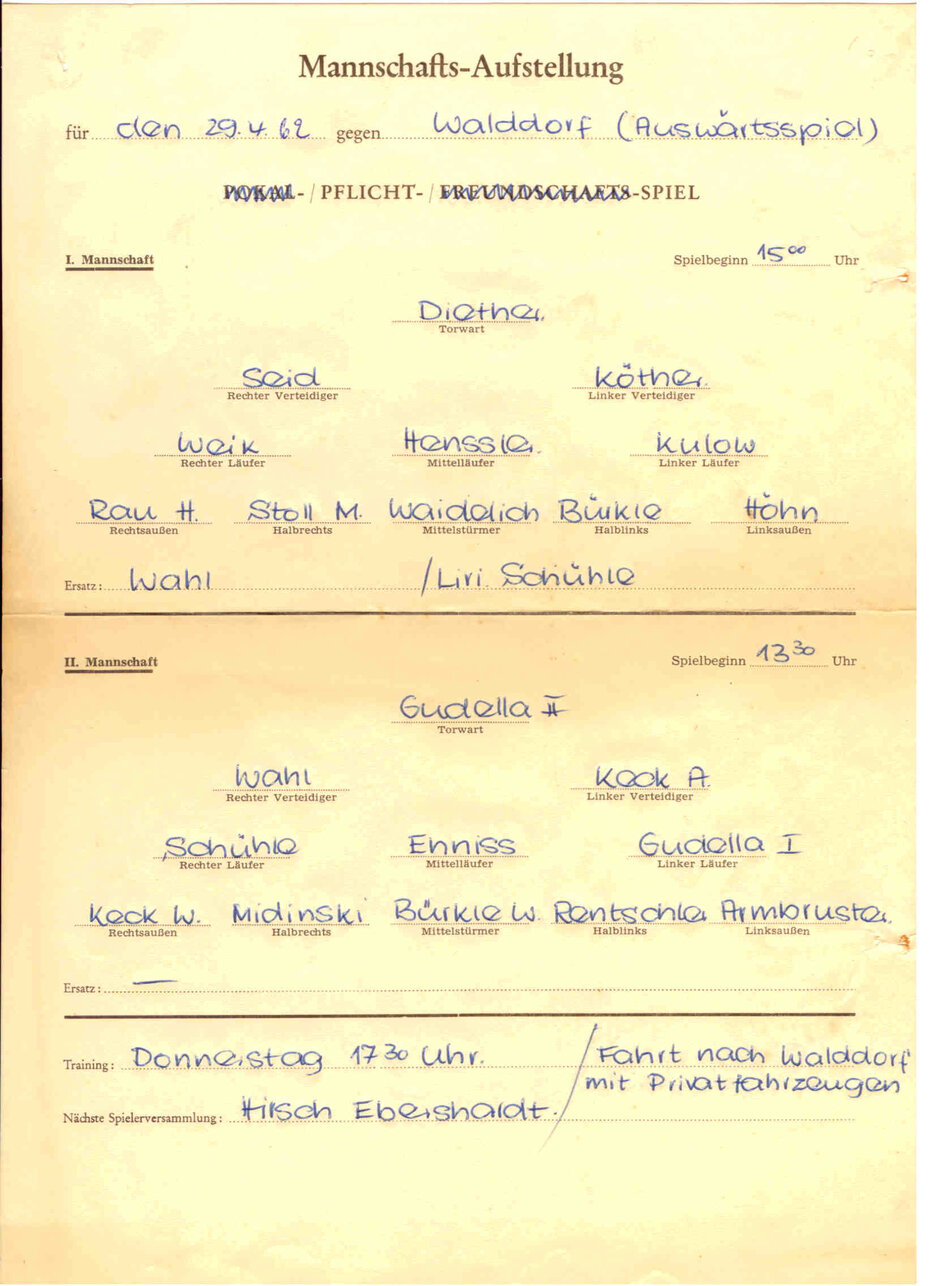 Mannschafts-Aufstellung
für den 29.4.62 gegen Walddorf (Auswärtsspiel)
POKAL- / PFLICHT- / FREUNDSCHAFTS-SPIEL
I. Mannschaft Spielbeginn 15⁰⁰ Uhr
Diether
Torwart
Seid Köther
Rechter Verteidiger Linker Verteidiger
Weik Henssler Kulow
Rechter Läufer Mittelläufer Linker Läufer
Rau H. Stoll M. Waidelich Bürkle Höhn
Rechtsaußen Halbrechts Mittelstürmer Halblinks Linksaußen
Ersatz: Wahl / Liri Schühle
II. Mannschaft Spielbeginn 13³⁰ Uhr
Gudella II
Torwart
Wahl Keck A.
Rechter Verteidiger Linker Verteidiger
Schühle Enniss Gudella I
Rechter Läufer Mittelläufer Linker Läufer
Keck W. Midinski Bürkle W. Rentschler Armbruster
Rechtsaußen Halbrechts Mittelstürmer Halblinks Linksaußen
Ersatz: —
Training: Donnerstag 17 30 Uhr. / Fahrt nach Walddorf
mit Privatfahrzeugen
Nächste Spielerversammlung: Hirsch Ebershardt.